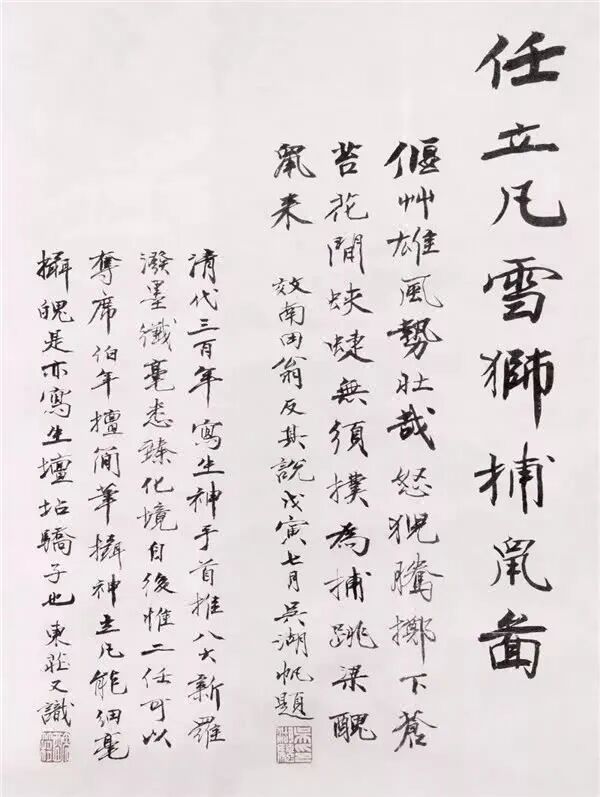 任立凡雪獅捕鼠啚
偃艸雄風勢壯哉怒猊騰擲下蒼
苔花閒蛱蜨無須撲為捕跳梁醜
鼠来
效南田翁反其說戊寅七月吴湖帆題
清代三百年寫生神手首推八大新羅
潑墨纖毫悉臻化境自後惟二任可以
奪席伯年擅簡筆攝神立凡能細毫
攝魄是亦寫生壇坫驕子也東莊又識